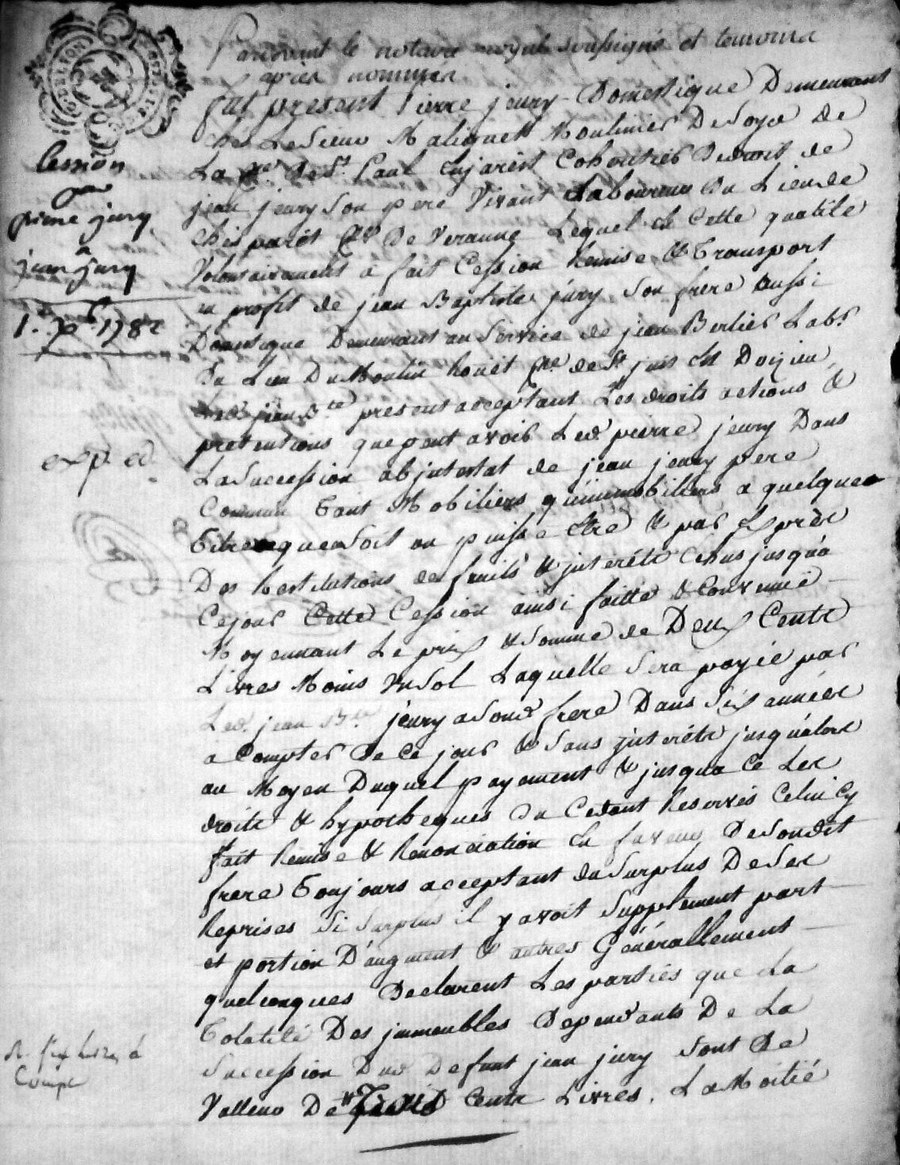 Pardevant le notaire royal soussigné et temoins
apres nommés
fut present Pierre jeury Domestique Demeurant
ches Le Sieur Maliquet Moulinier De Soye de
La p.sse De St. Paul Enjarest Cohéritier De droit de
jean jeury Son pere Vivant Laboureur Du Lieu de
p.sse De Veranne Lequel En Cette qualité
Volontairement a fait Cession Remise & Transport
au profit de jean Baptiste jeury Son frere aussi
Domestique Demeurant au Service de jean Berlier Lab.r
Du Lieu Du Moulin p.sse de St just En Doizieu
Led. jean B.te present acceptant Les droits actions &
pretentions que peut avoir Led. pierre jeury Dans
La Succession abjntestat de jean jeury pere
Commun tant Mobiliers qu'immobiliers a quelque
titre que soit ou puisse être & par Exprès
Des Restitutions de fruits & jnterêts Echus jusqu'a
Ce jour Cette Cession ainsi faitte & Convenue
Moyennant Le prix & Somme de Deux Cents
Livres Moins Un Sol Laquelle Sera payée par
Led. jean B.te jeury a Sond. frere Dans Six années
a Compter De Ce jour & Sans jnterêts jusqu'alors
au Moyen Duquel payement & jusqu'a Ce Les
droits & hypotheques du Cedant Reservés Celui Cy
fait Remise & Renonciation En faveur De Son dit
frere Toujours acceptant du Surplus De Ses
Reprises Si Surplus il y avoit Supplement part
et portion D'augment & autres Générallement
quelconques Declarent Les parties que La
Totalité Des jmmeubles Dependants De La
Succession Dud. Defunt jean jeury Sont De
Valleur De Trois Cents Livres. La Moitié
Cession
par
pierre jury
a
jean jury
1. 7.bre 1782
exp. ed.